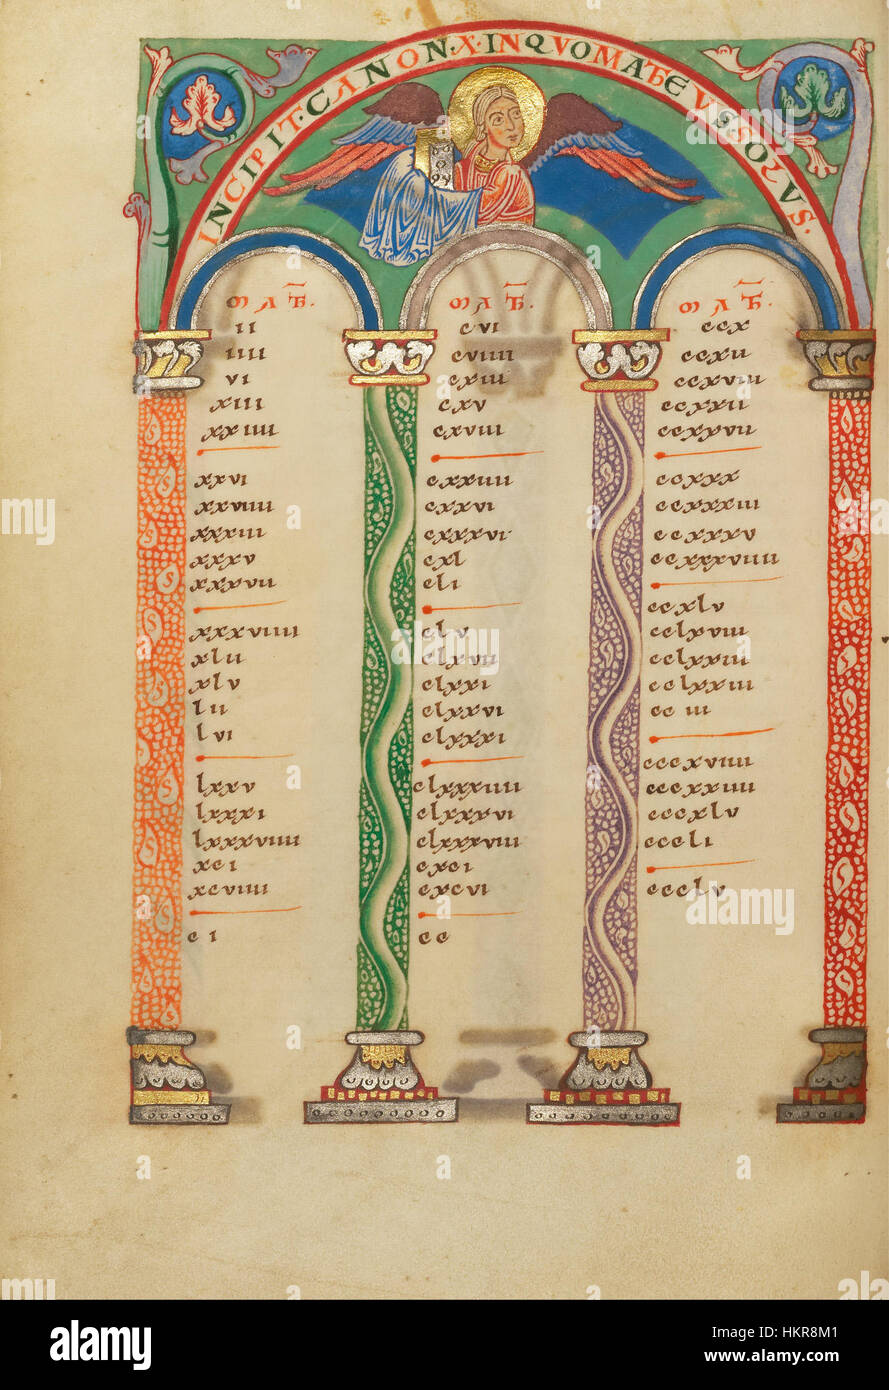 INCIPIT·CANON·X·INQVOMATHEVS·SOLVS·
MATH.
ii
iiii
vi
xiii
xxiiii
xxvi
xxviiii
xxxiii
xxxv
xxxvii
xxxviiii
xlii
xlv
lii
lvi
lxxv
lxxxi
lxxxviiii
xci
xcviiii
ci
MATH.
cvi
cviiii
cxiii
cxv
cxviii
cxxiiii
cxxvi
cxxxvi
cxl
cli
clv
clxvii
clxxi
clxxvi
clxxxi
clxxxiiii
clxxxvi
clxxxviii
cxci
cxcvi
cc
MATH.
ccx
ccxii
ccxviii
ccxxii
ccxxvii
ccxxx
ccxxxiii
ccxxxv
ccxxxviiii
ccxlv
cclxviii
cclxxiii
cclxxiii
cc iii
cccxviiii
cccxxiiii
cccxlv
cccli
ccclv
alamy
Image ID: HKR8M1
www.alamy.com